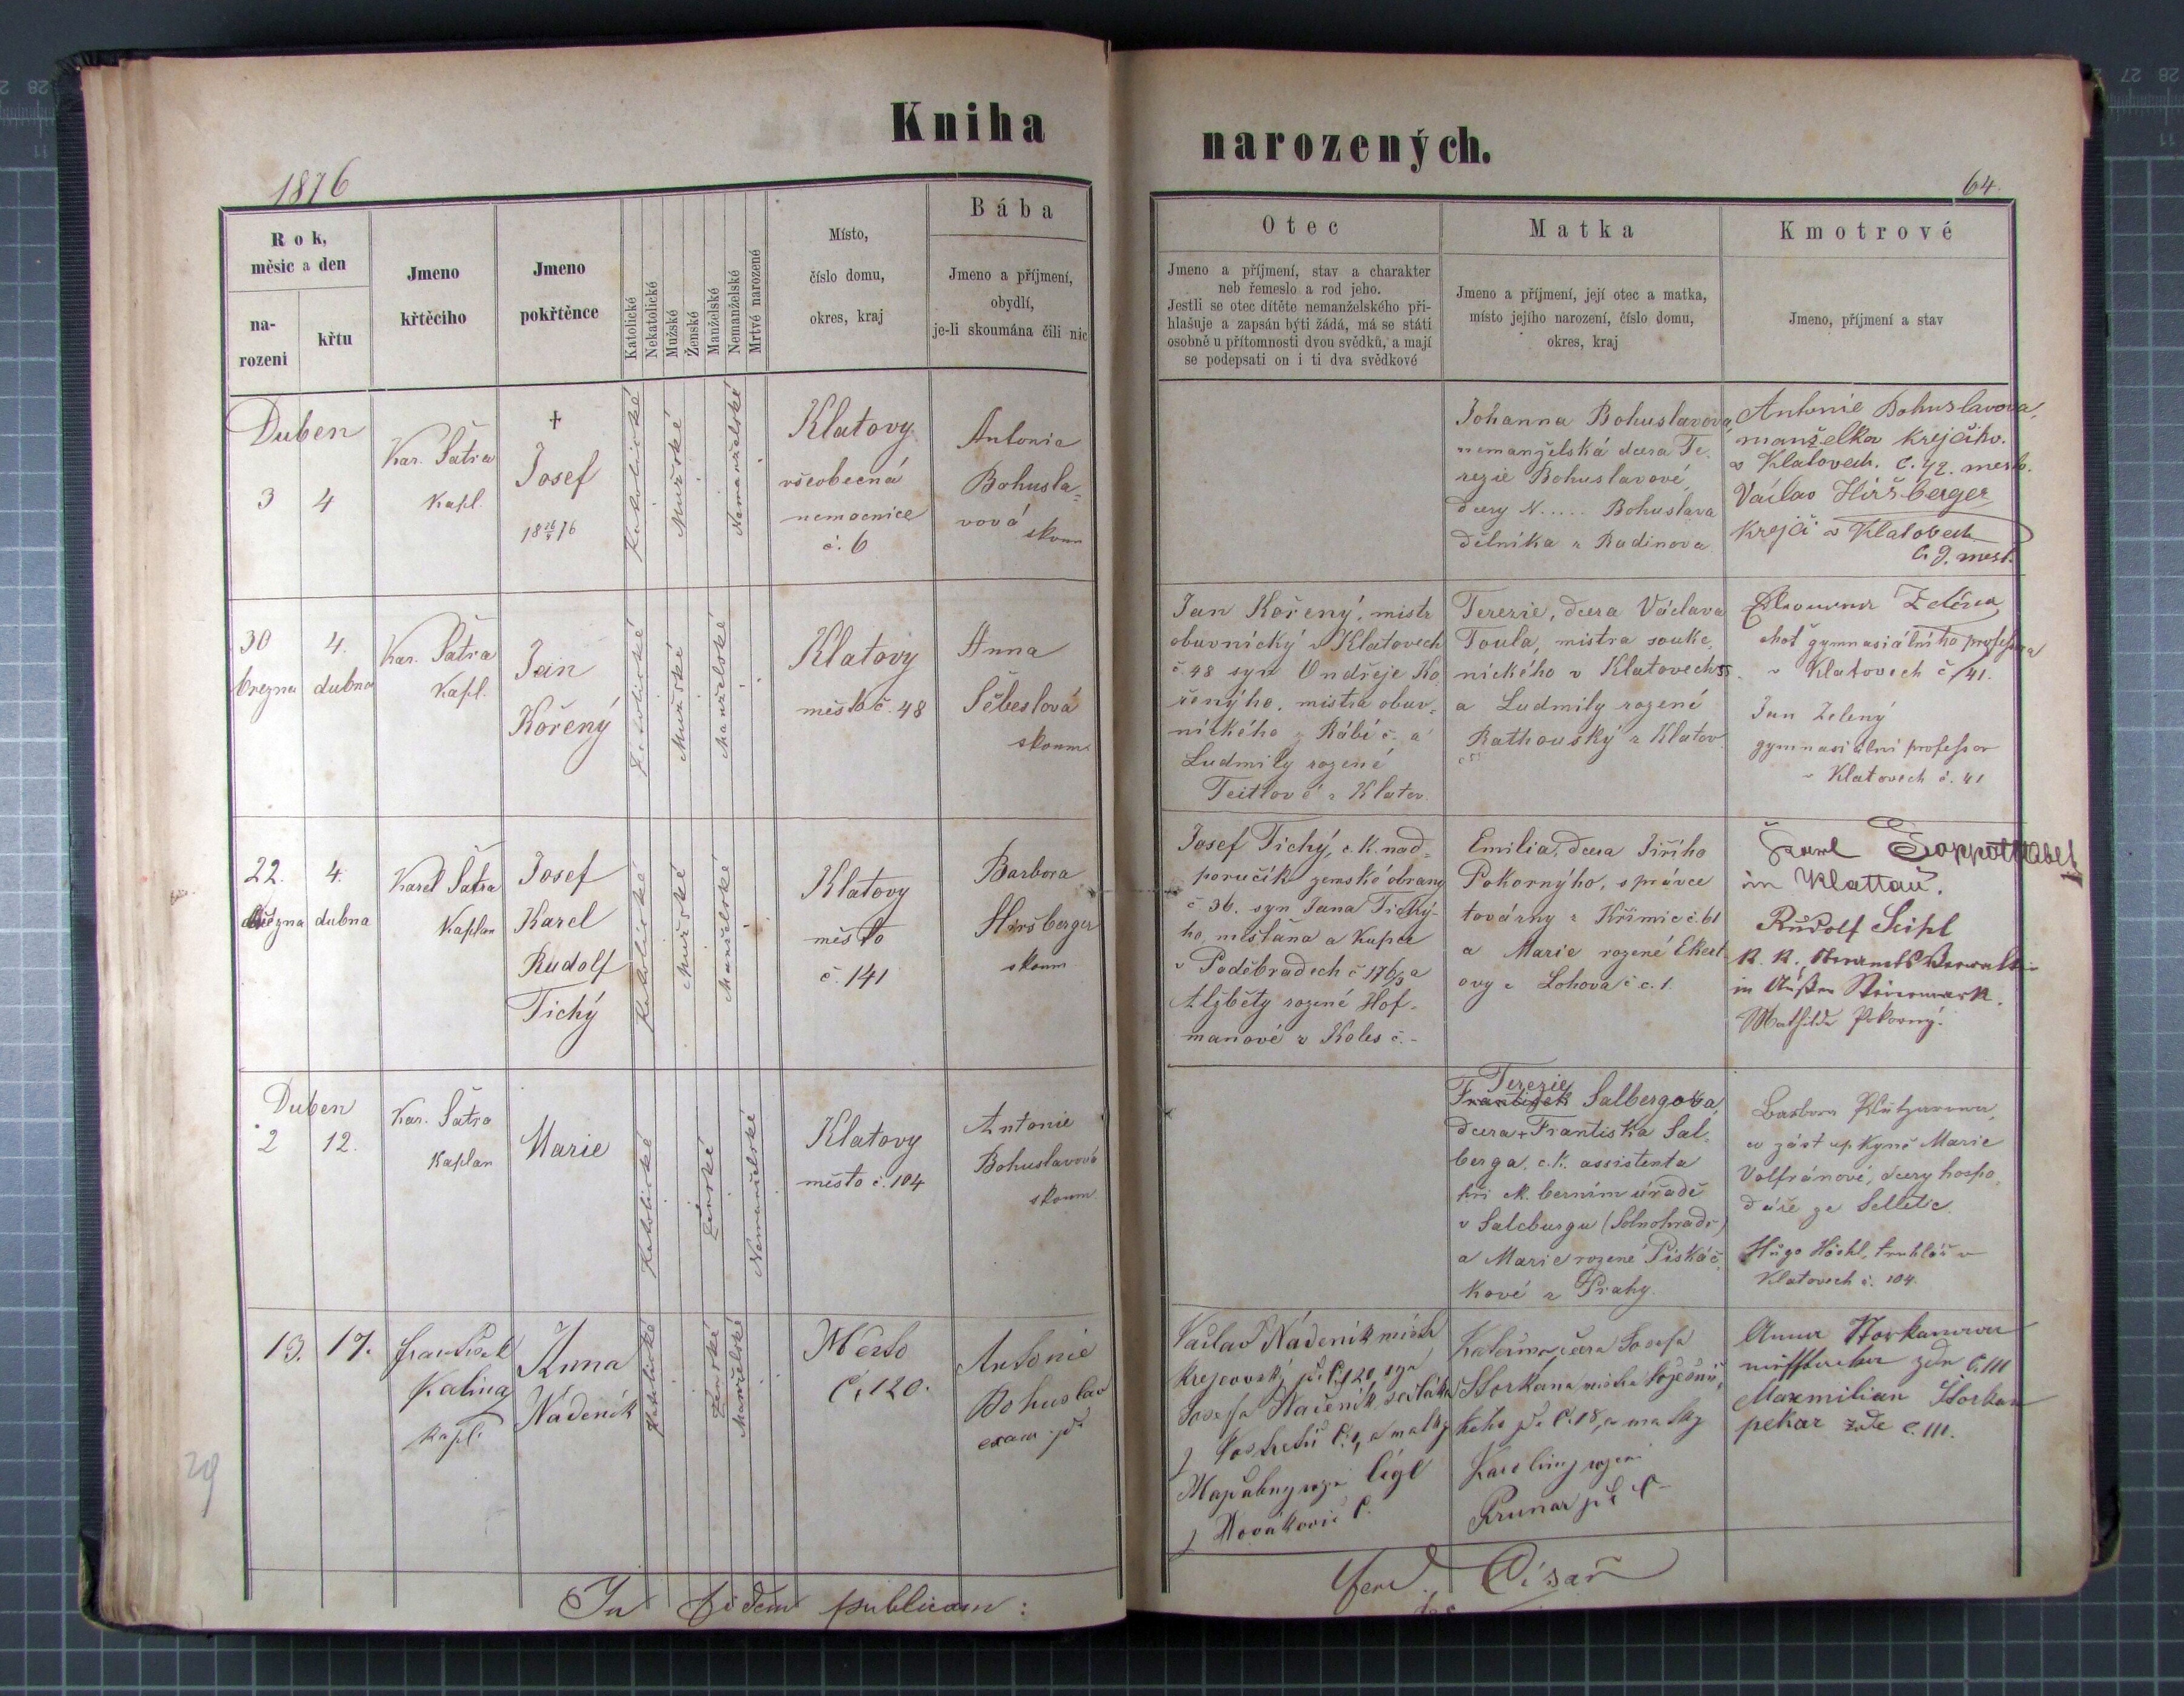 Kniha
narozených.
1876
64.
Rok,
měsíc a den
na-
rození
křtu
Jmeno
křtěcího
Jmeno
pokřtěnce
Katolické
Nekatolické
Mužské
Ženské
Manželské
Nemanželské
Mrtvé narozené
Místo,
číslo domu,
okres, kraj
Bába
Jmeno a příjmení,
obydlí,
je-li skoumána čili nic
Otec
Jmeno a příjmení, stav a charakter
neb řemeslo a rod jeho.
Jestli se otec dítěte nemanželského při-
hlašuje a zapsán býti žádá, má se státi
osobně u přítomnosti dvou svědků, a mají
se podepsati on i ti dva svědkové
Matka
Jmeno a příjmení, její otec a matka,
místo jejího narození, číslo domu,
okres, kraj
Kmotrové
Jmeno, příjmení a stav
Duben
3 4
Kar. Šatra
Kapl.
†
Josef
Katolické
Mužské
Nemanželské
Klatovy
všeobecná
nemocnice
č. 6
Antonie
Bohusla-
vová
skoum
Johanna Bohuslavova,
nemanželská dcera Te-
rezie Bohuslavové,
dcery N..... Bohuslava
dělníka z Radinova
Antonie Bohuslavova,
manželka krejčího.
v Klatovech. č. 42. mesto.
Václav Hiršberger
Krejčí v Klatovech
č. 9. mest.
30 4.
brezna dubna
Kar. Šatra
Kapl.
Jan
Kořený
Katolické
Mužské
Manželské
Klatovy
město č. 48
Anna
Šebeslová
skoum
Jan Kořený, mistr
obuvnický v Klatovech
č. 48 syn Ondřeje Ko-
řenýho, mistra obuv-
nického z Rábí č. a
Ludmily rozené
Teitlové z Klatov.
Terezie, dcera Václava
Toula, mistra souke-
nického v Klatovech 55.
a Ludmily rozené
Rathouský z Klatov
Zelená
choť gymnasiálního professora
v Klatovech č. 41.
Jan Zelený
gymnasiální professor
v Klatovech č. 41
22. 4.
března dubna
Karel Šatra
Kaplan
Josef
Karel
Rudolf
Tichý
Katolické
Mužské
Manželské
Klatovy
město
č. 141
Barbora
Hirsberger
skoum
Josef Tichý, c. k. nad-
poručík zemské obrany
č 36. syn Jana Tichý-
ho, měšťana a kupce
v Poděbradech č 176/3 a
Alžběty rozené Hof-
manové z Koles č. -
Emilia, dcera Jiřího
Pokornýho, správce
továrny z Křimic č. 61
a Marie rozené Ekert-
ovy z Lohova č. 1.
Karl
in Klattau.
Rudolf Seipl
K. K.
in
Mathilde Pokorný.
Duben
2 12.
Kar. Šatra
Kaplan
Marie
Katolické
Ženské
Nemanželské
Klatovy
město č. 104
Antonie
Bohuslavová
skoum
Terezie
František Salbergova,
dcera + Františka Sal-
berga, c. k. assistenta
při c. k. berním úřadě
v Salcburgu (Solnohradě)
a Marie rozené Piskáč-
kové z Prahy.
Barbora
v zástupkyně Marie
Volfránové, dcery hospo-
dáře ze
Hugo Höchl, truhlář v
Klatovech č. 104.
13. 17.
František
Kalina
Kapl.
Anna
Nadenik
Katolické
Ženské
Manželské
Město
č. 120.
Antonie
Bohuslav
exam.
Václav Nádeník mistr
krejcovský č. 120, syn
Josefa Nadeník sedláka
č. 1, a matky
Magdaleny roze Cigl
z č.
Kateřina, dcera Josefa
Storkana mistra
č. 18, a matky
Karoliny rozené
Prunar
Anna Storkanova
zde č. 111
Maxmilian Storkan
pekar zde č. 111.
29
In fidem publicam:
Ferd. Císař